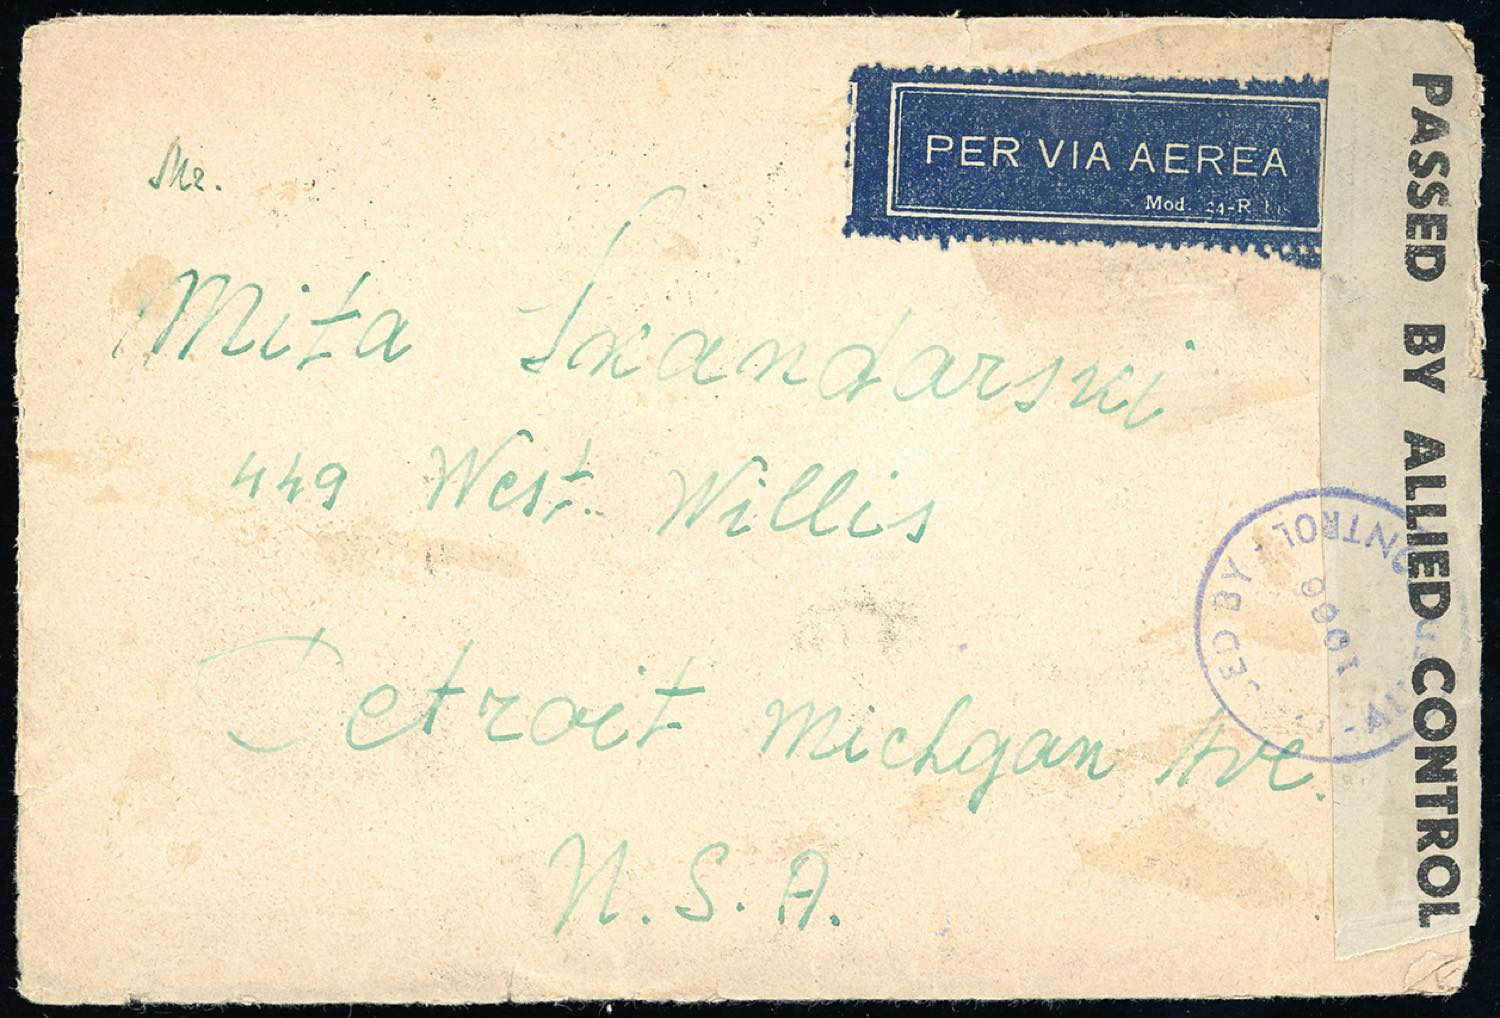 PER VIA AEREA
Mod. 24-R bis
Mr.
Mita Skandarski
449 West. Willis
Detroit Michgan Ave.
N.S.A.
PASSED BY ALLIED CONTROL
ED BY
CONTROL